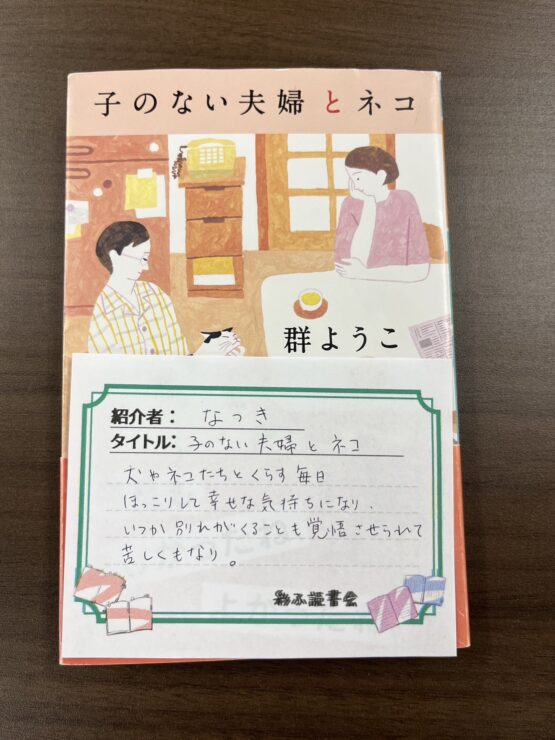 子のない夫婦とネコ
群ようこ
紹介者： なつき
タイトル： 子のない夫婦とネコ
犬やネコたちとくらす毎日
ほっこりして幸せな気持ちになり、
いつか別れがくることも覚悟させられて
苦しくもなり。
彩ふ読書会